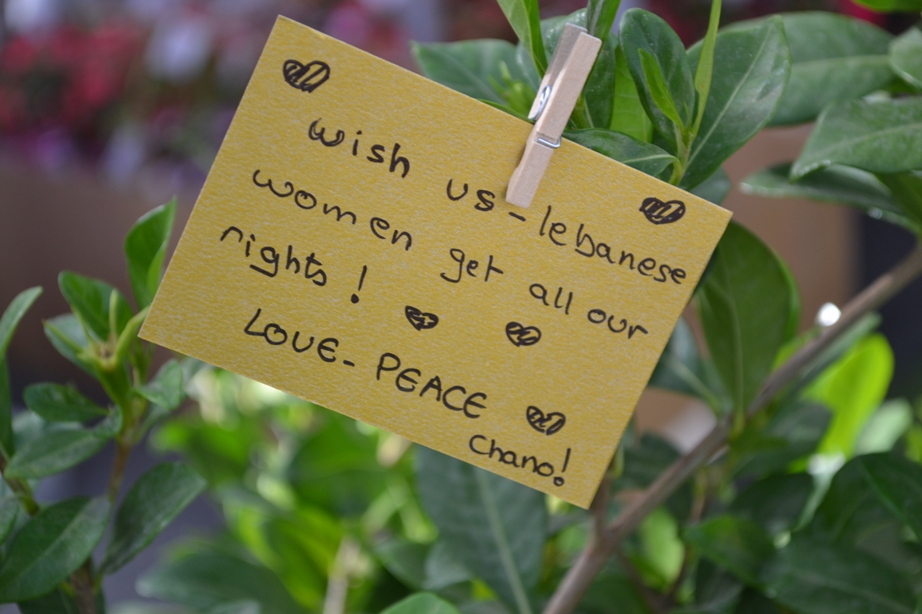 wish us-lebanese
women get all our
rights!
LOVE-PEACE
Chano!